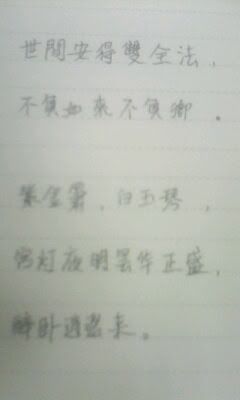 世間安得雙全法，
不負如來不負卿。
紫金箫，白玉琴，
宫灯夜明昙华正盛，
醉卧逍遥。